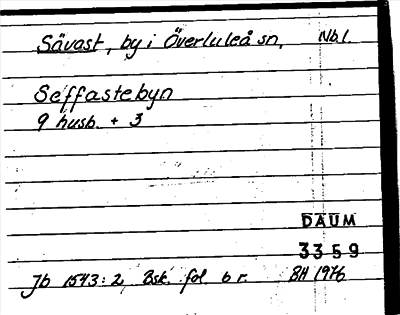 Sävast, by i Överluleå sn, Nb l.
Seffastebyn
9 husb. + 3
DAUM
3359
Jb 1543:2, Bsk. fol. 6 r. BH 1976